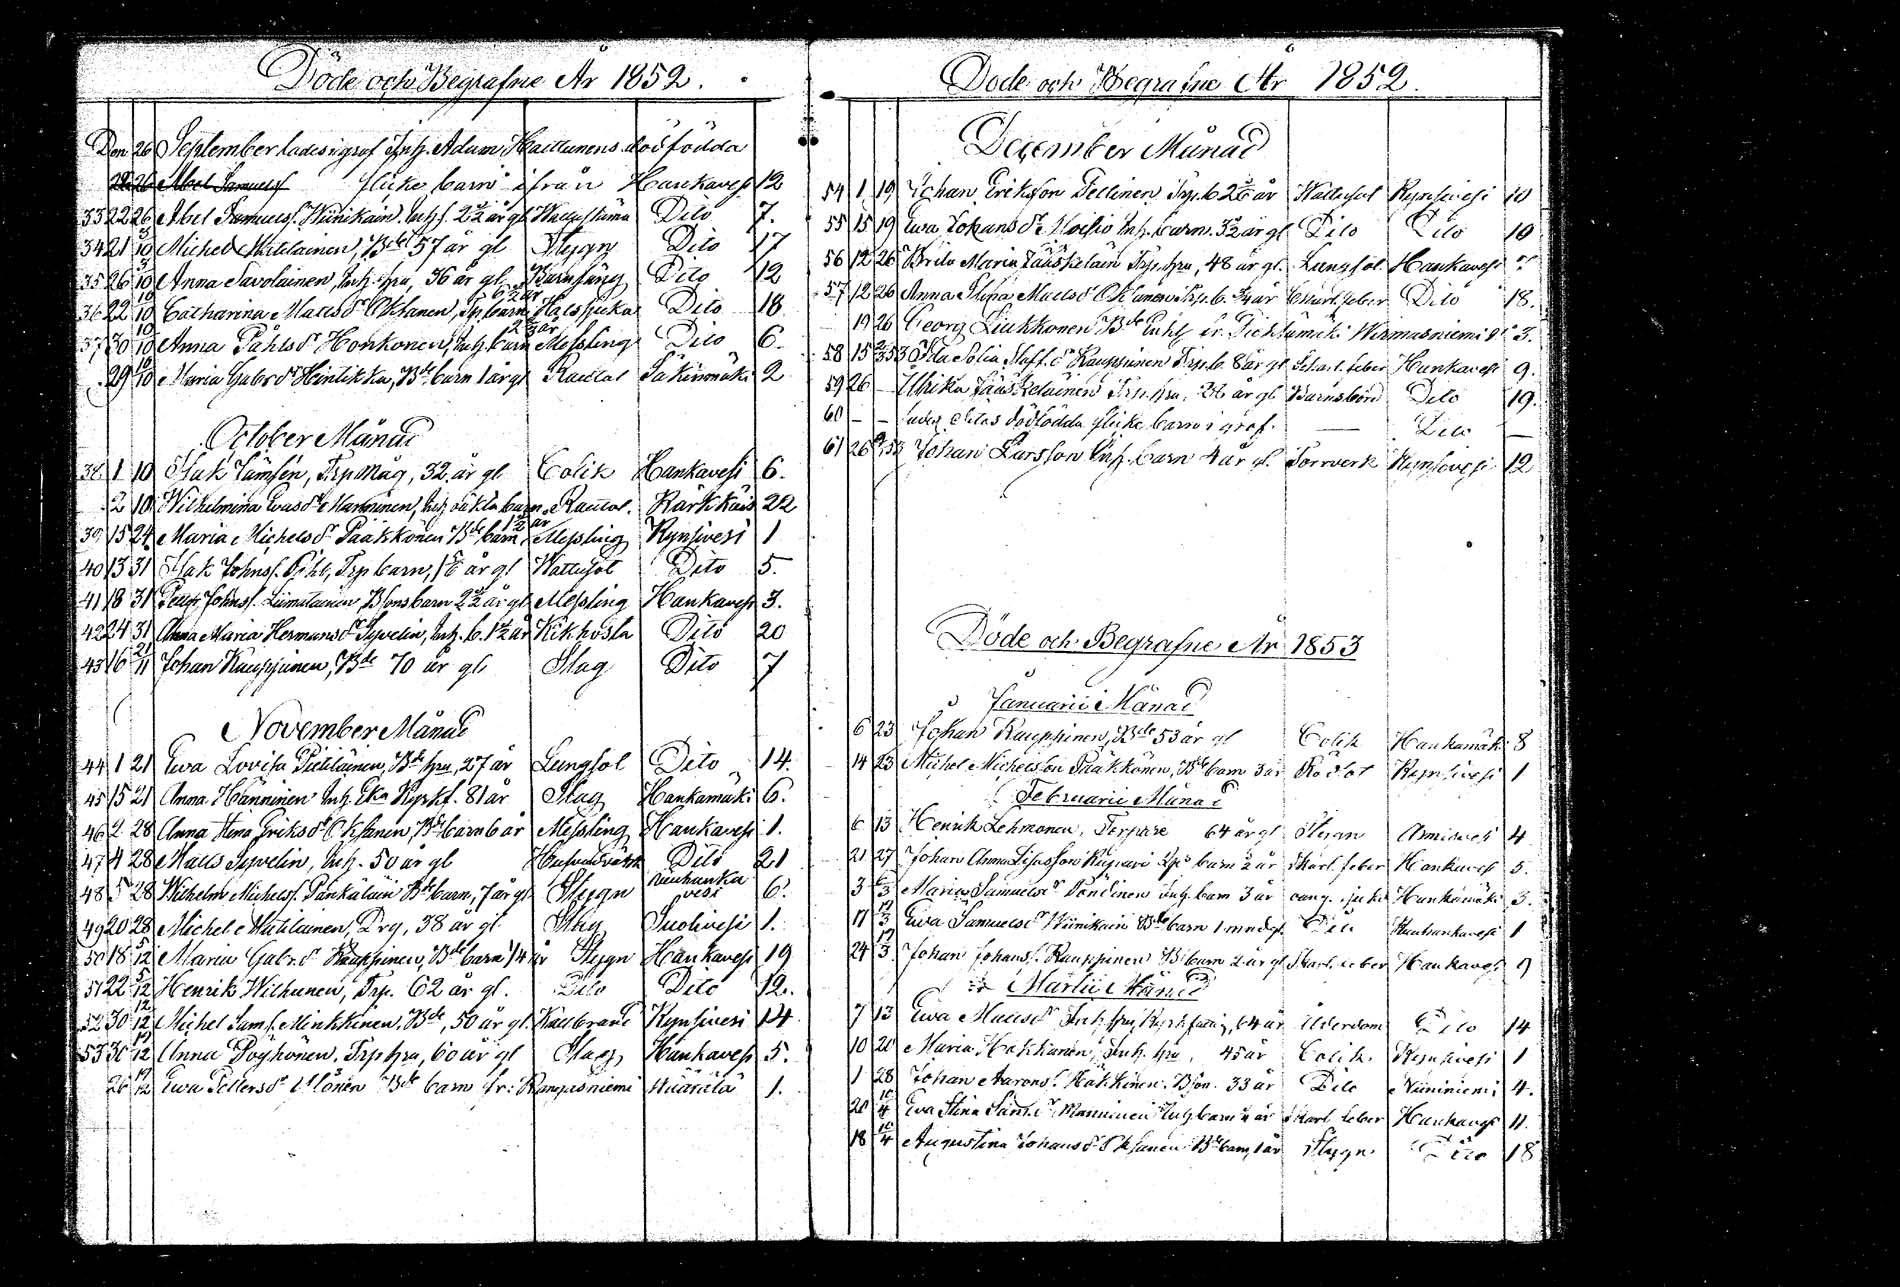 Döde och Begrafne År 1852.
Den 26 September lades i graf Inh. Adam Haitunens dödfödda
26 Abel Samuels flicke barn ifrån Hankaves 12
33 22 26 Abel Samuels. Wiinikain. Inh. s. 2 1/2 år gl Dito 7.
34 21 3/10 Michel Matilainen, Bde 57 år gl Stygn Dito 17
35 26 3/10 Anna Savolainen, Inh. hu, 36 år gl Barnsäng Dito 12
36 22 10/10 Catharina Matts dr Oksanen, Trp. barn 6 1/2 år Halssjuka Dito 18
37 30 10/10 Anna Påhls dr Honkonen, Inh. barn Messling Dito 6.
29 10/10 Maria Gabr. dr Hintikka, Bde barn 1 år gl Rödsot Säkinmäki 2
October Månad
38 1 10 Isak Jamsén, Trp måg, 32 år gl Colik Hankavesi 6.
2 10 Wilhelmina Manninen, Inh. oäkta barn Rödsot. Kärkkäis 22
39 15 24 Maria Michels dr Pääkkönen Bde barn 1 1/2 år Messling Kynsivesi 1
40 13 31 Isak Johns. Pihl, Trp barn, 1 år gl Wattusot Dito 5.
41 18 31 Johns. Liimatainen Bsons barn 2 1/2 år gl Messling Hankaves 3.
42 24 31 Anna Maria Hermans dr Syvelin, Inh. b. 1 1/2 år Kikhosta Dito 20
43 16 21/11 Johan Kauppinen, Bde 70 år gl Slag Dito 7
November Månad
44 1 21 Ewa Lovisa Pietiläinen, Bde hu, 27 år Lungsot Dito 14.
45 15 21 Anna Hänninen Inh. Eka Kyrkf. 81 år Slag Hankamäki 6.
46 2 28 Anna Stina Eriks dr Oksanen, Bde barn 6 år Messling Hankavesi 1.
47 4 28 Matts Syvelin, Inh. 50 år gl Hufvudvärk Dito 21
48 5 28 Wilhelm Michels. Pänkäläin Bde barn, 7 år gl Stygn Rauhankavesi 6.
49 20 28 Michel Matilainen, Drg, 38 år gl Slag Suolivesi 1.
50 18 5/12 Maria Gabr. dr Kauppinen, Bde barn 1/4 år Stygn Hankaves 19
51 22 5/12 Henrik Wilhunen, Trp. 62 år gl. Dito Dito 12.
52 30 12/12 Michel Sams. Minkkinen, Bde, 50 år gl. Kallbrand Kynsivesi 14
53 30 12/12 Anna Pöyhönen. Trp hu, 60 år gl Slag Hankaves 5.
26 19/12 Ewa Petters dr Ulönen Bde barn fr: Rampasniemi Määrälä 1.
Döde och Begrafne År 1852.
December Månad
54 1 19 Johan Eriksson Trp. b 2 år Wattusot Kynsivesi 10
55 15 19 Ewa Johans dr Moisio Inh. barn. 3 1/2 år gl Dito Dito 10
56 12 26 Brita Maria Jääskeläin Trp. hu, 48 år gl. Lungsot Hankaves
57 12 26 Anna Stina Matts dr Oksanen Trp. b. 3/4 år Skarl. feber Dito 18.
19 26 Georg Liukkonen Bde Inh fr. Wirmasniemi 3.
58 15 53 Ida Sofia Staff. dr Kauppinen Trp. b. 8 år gl Skarl. feber Hankaves 9.
59 26 — Ulrika Jääskeläinen Trp. hu, 36 år gl Barnsbörd Dito 19.
60 — — lades ditas dödfödda flicke barn i graf. — Dito —
61 26 53 Johan Larsson Inh. barn 4 år gl. Torrverk Kynsivesi 12
Döde och Begrafne År 1853
Januarii Månad
6 23 Johan Kauppinen, Bde 53 år gl Colik Hankamäki 8
14 23 Michel Michelsson Pääkkönen, Bde barn 3 år Rödsot Kynsivesi 1
Februarii Månad
6 13 Henrik Lehmonen, Torpare 64 år gl Stygn Armisvesi 4
21 27 Johan barn 2 år Skarl. feber Hankaves 5.
3 6/3 Maria Samuels dr Pöndinen Inh. barn 3 år Hankamäki 3.
17 13/3 Ewa Samuels dr Wiinikain Bde barn 1 mnd gl Dito Rauhankavesi 1
24 13/3 Johan Johans. Kauppinen B. barn 2 år gl Skarl. feber Hankaves 9
Martii Månad
7 13 Ewa Matts dr Inh. hu, Kyrkfattig, 64 år Ålderdom Dito 14
10 20 Maria Hokkanen, Inh. hu, 45 år Colik Kynsivesi 1
1 28 Johan Aarons. Häkkinen. Bson. 33 år Dito Niininiemi 4.
20 10/4 Ewa Stina Sam. dr Manninen Inh. barn 2 år Skarl feber Hankaves 11.
18 10/4 Augustina Johans dr Oksanen Bde barn, 1 år Stygn Dito 18